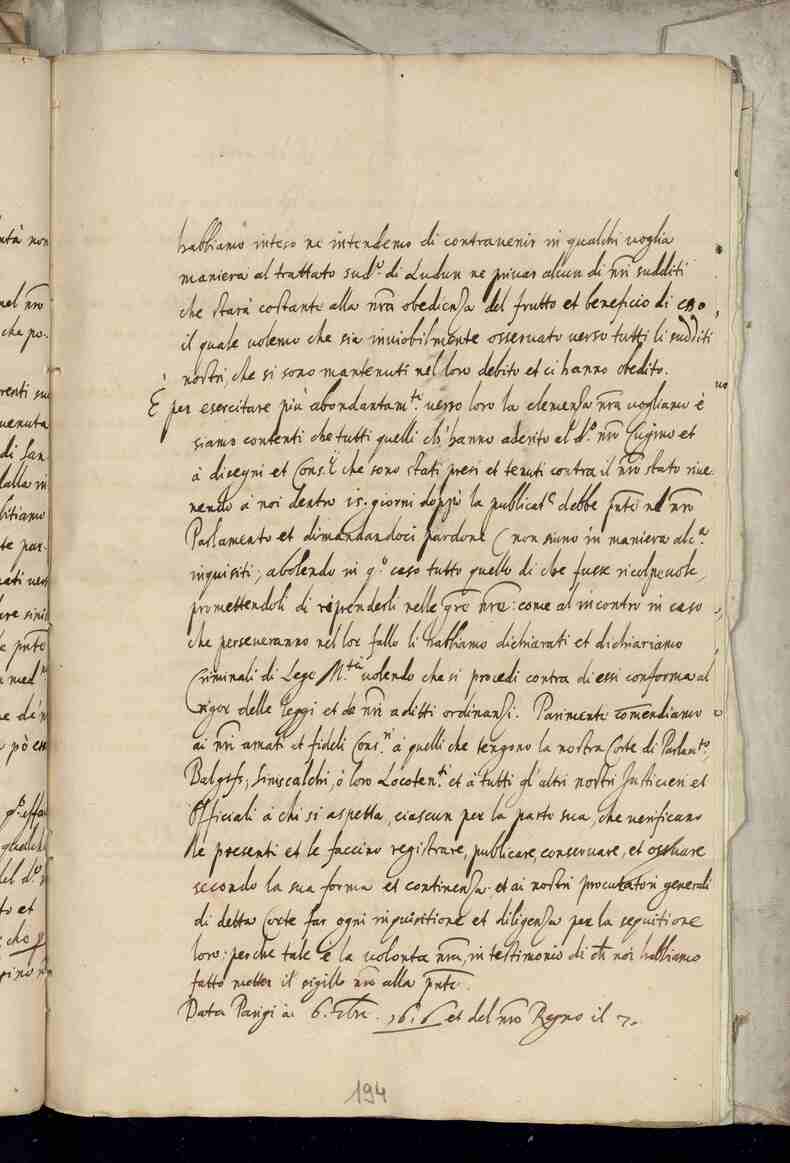 habbiamo inteso ne intendemo di contravenir in qualchi voglia
maniera al trattato sud.º di Ludun ne privar alcun di nr̃i sudditi
che starà costante alla nr̃a obedienza del frutto et beneficio di esso,
il quale volemo che sia inviobilmente osservato verso tutti li sudditi
nostri che si sono mantenuti nel loro debito et ci hanno obedito.
È per esercitare più abondantam.te verso loro la clemenza nr̃a vogliamo è
siamo contenti che tutti quelli ch'hanno aderito al d.º nr̃o Cugino et
à disegni et Cons.li che sono stati presi et tenuti contra il nr̃o stato rive-
nendo à noi dentro 15. giorni doppò la publicat.e debbe pñte nel nr̃o
Parlamento et dimandandoci pardone (non siano in maniera alc.a
inquisiti; abolendo in q.º caso tutto quello di che fusse ricolpevole,
promettendoli di riprenderli nelle gr̃e nr̃e: come al incontro in caso
che perseveranno nel lor fallo li habbiamo dichiarati et dichiariamo
Criminali di Lege M.tà volendo che si procedi contra di essi conforma al
rigor delle leggi et de nr̃i aditti ordinanzi. Parimente comendiamo
ai nr̃i amati et fideli Cons.ri à quelli che tengono la nostra Corte di Parlam.to,
Siniscalchi, ò loro Locoten.ti et à tutti gl'altri nostri Justicieri et
Officiali à chi si aspetta, ciascun per la parte sua, che verificano
le presenti et le faccino registrare, publicare, conservare, et osservare
secondo la sua forma et continenza. et ai nostri procutatori generali
di detta Corte far ogni inquisitione et diligenza per la
loro: perche tale è la volonta nr̃a, in testimonio di ch̃ noi habbiamo
fatto metter il sigillo nr̃o alla pñte.
Data Parigi à 6. 1616 et del nr̃o Regno il 7.
194